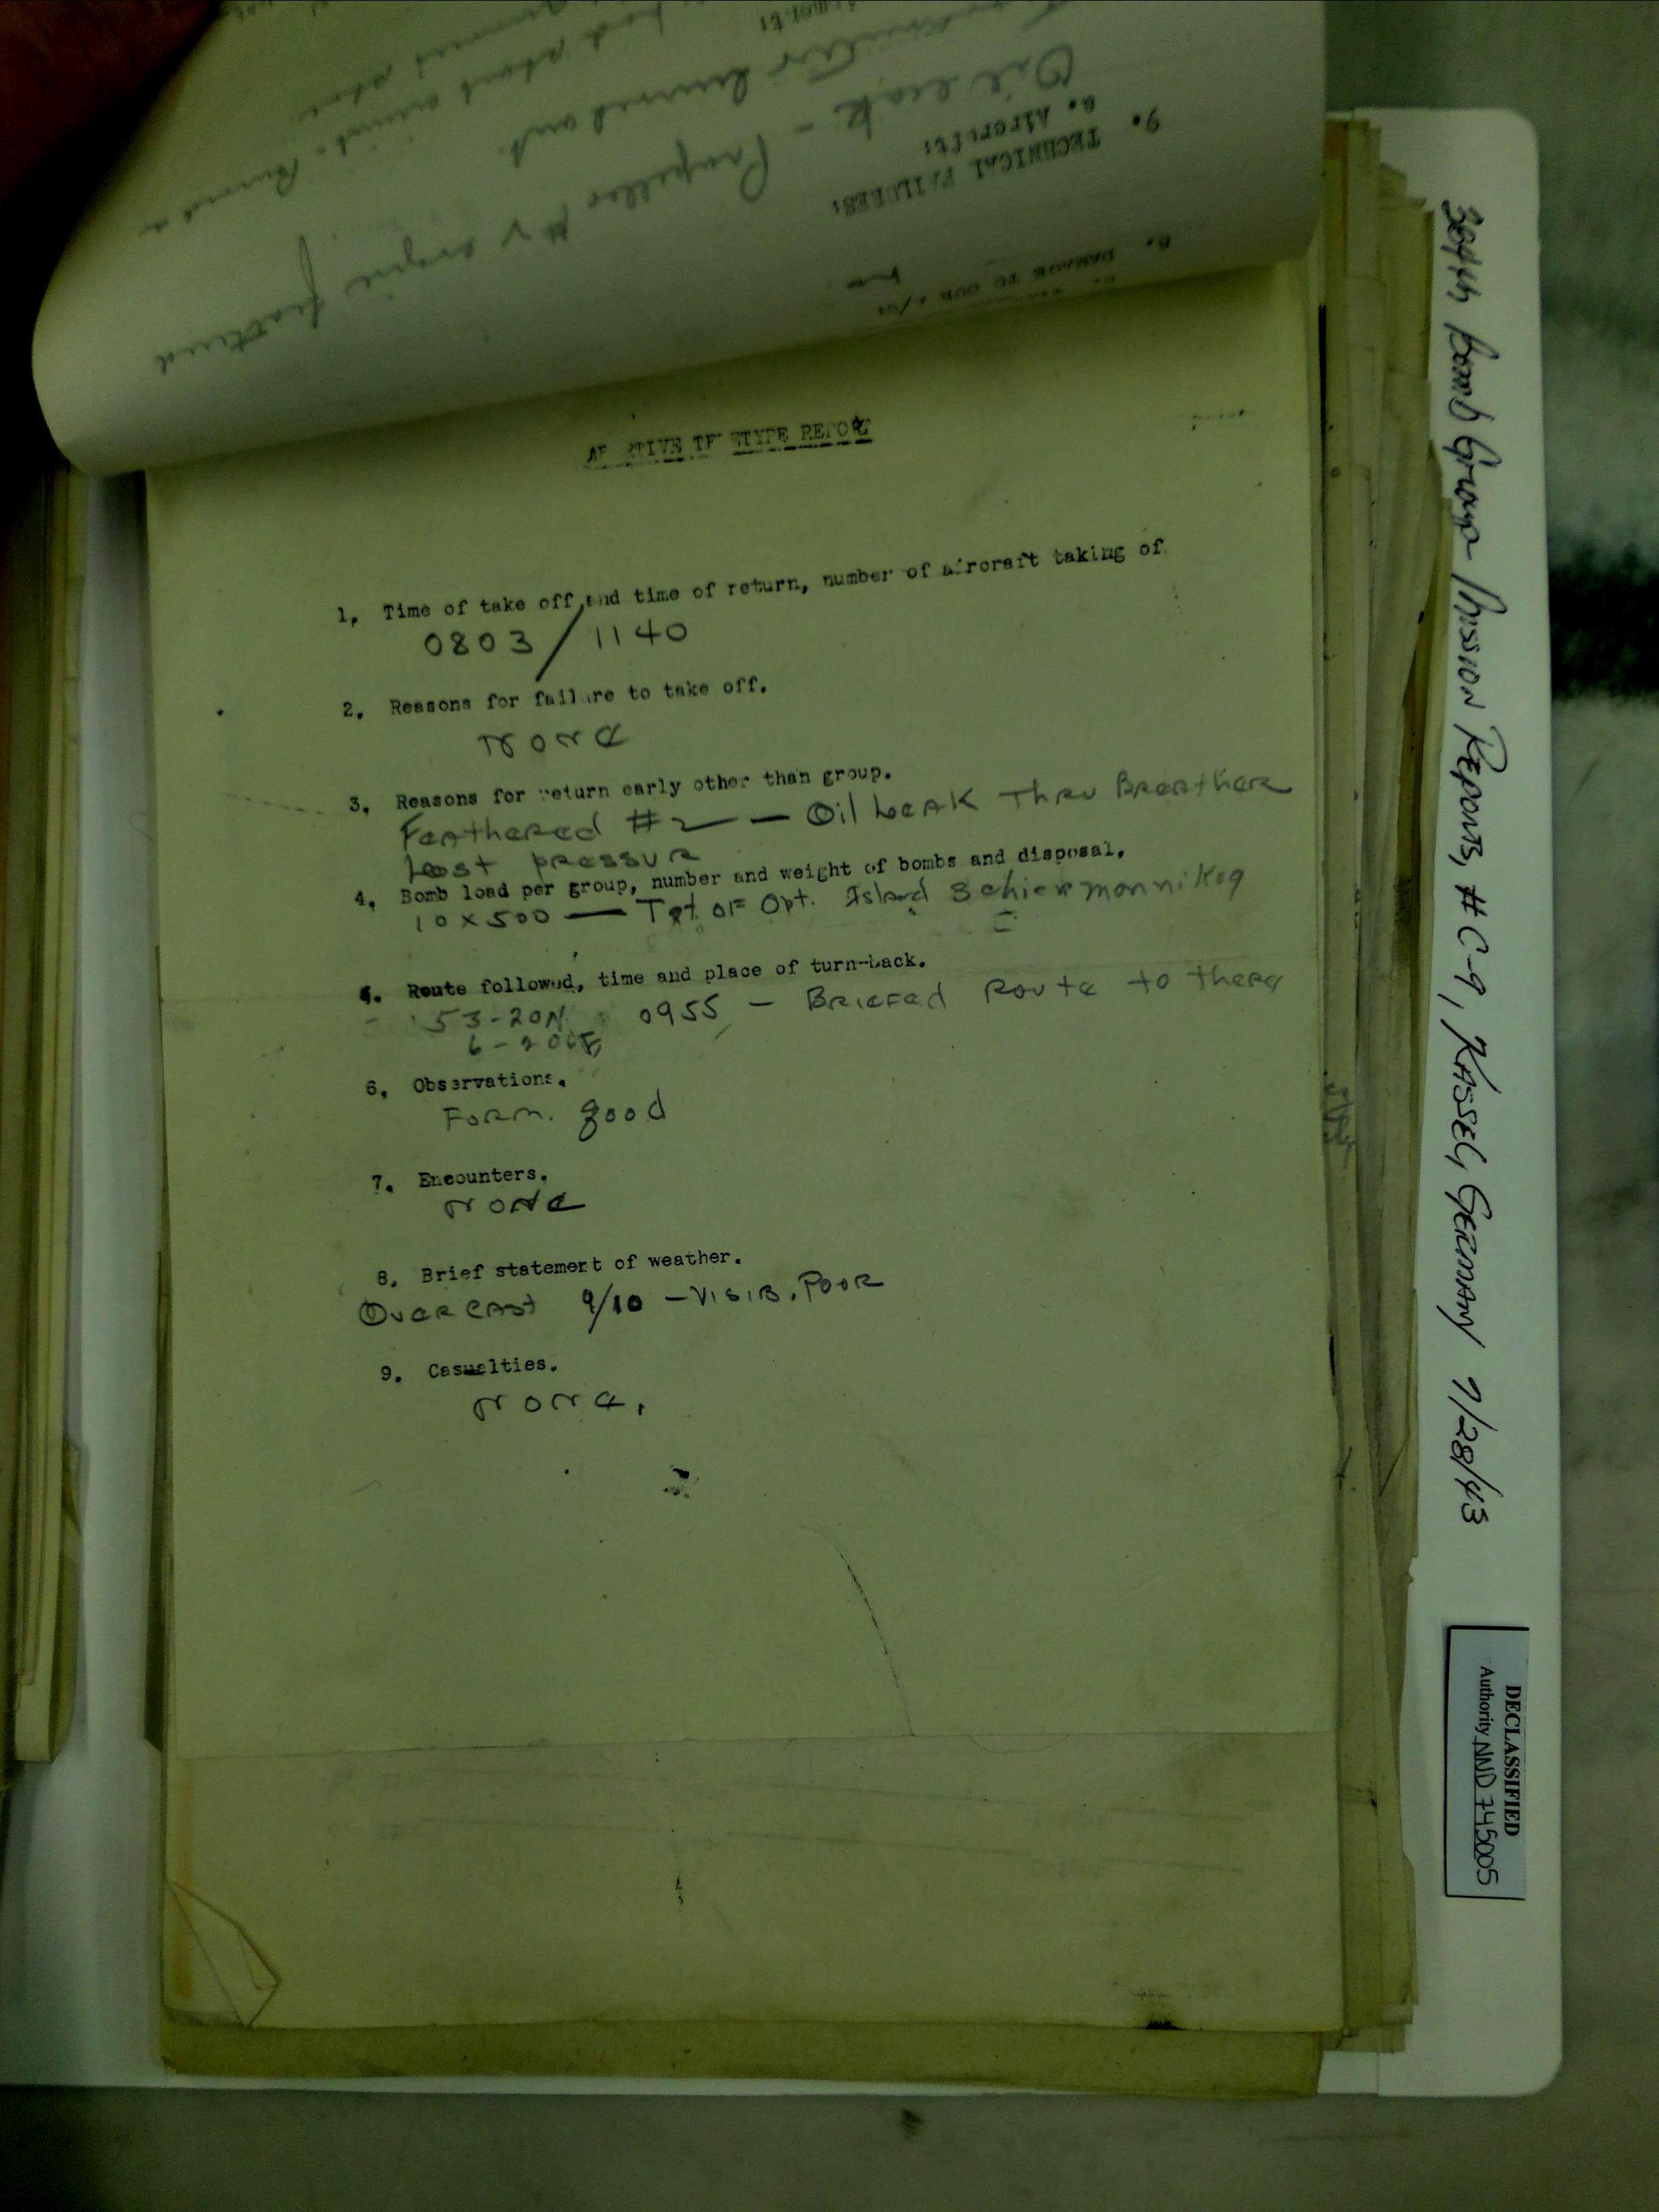 ABORTIVE TELETYPE REPORT
1. Time of take off and time of return, number of aircraft taking of
0803 / 1140
2. Reasons for failure to take off.
None
3. Reasons for return early other than group.
Feathered #2 — Oil Leak Thru Breather
Lost pressur
4. Bomb load per group, number and weight of bombs and disposal.
10 x 500 — Tgt of Opt. Island Schiermonnikog
5. Route followed, time and place of turn-back.
53-20N 0955 — Briefed Route to there
6-20E
6. Observations.
Form. good
7. Encounters.
None
8. Brief statement of weather.
Overcast 9/10 — Visib. Poor
9. Casualties.
None.
9. TECHNICAL FAILURES:
a. Aircraft:
Oil leak - Propeller #2 engine feathered
8. DAMAGE TO OUR A/C:
384th Bomb Group Mission Reports, #C-9, Kassel, Germany 7/28/43
DECLASSIFIED
Authority NND 745005